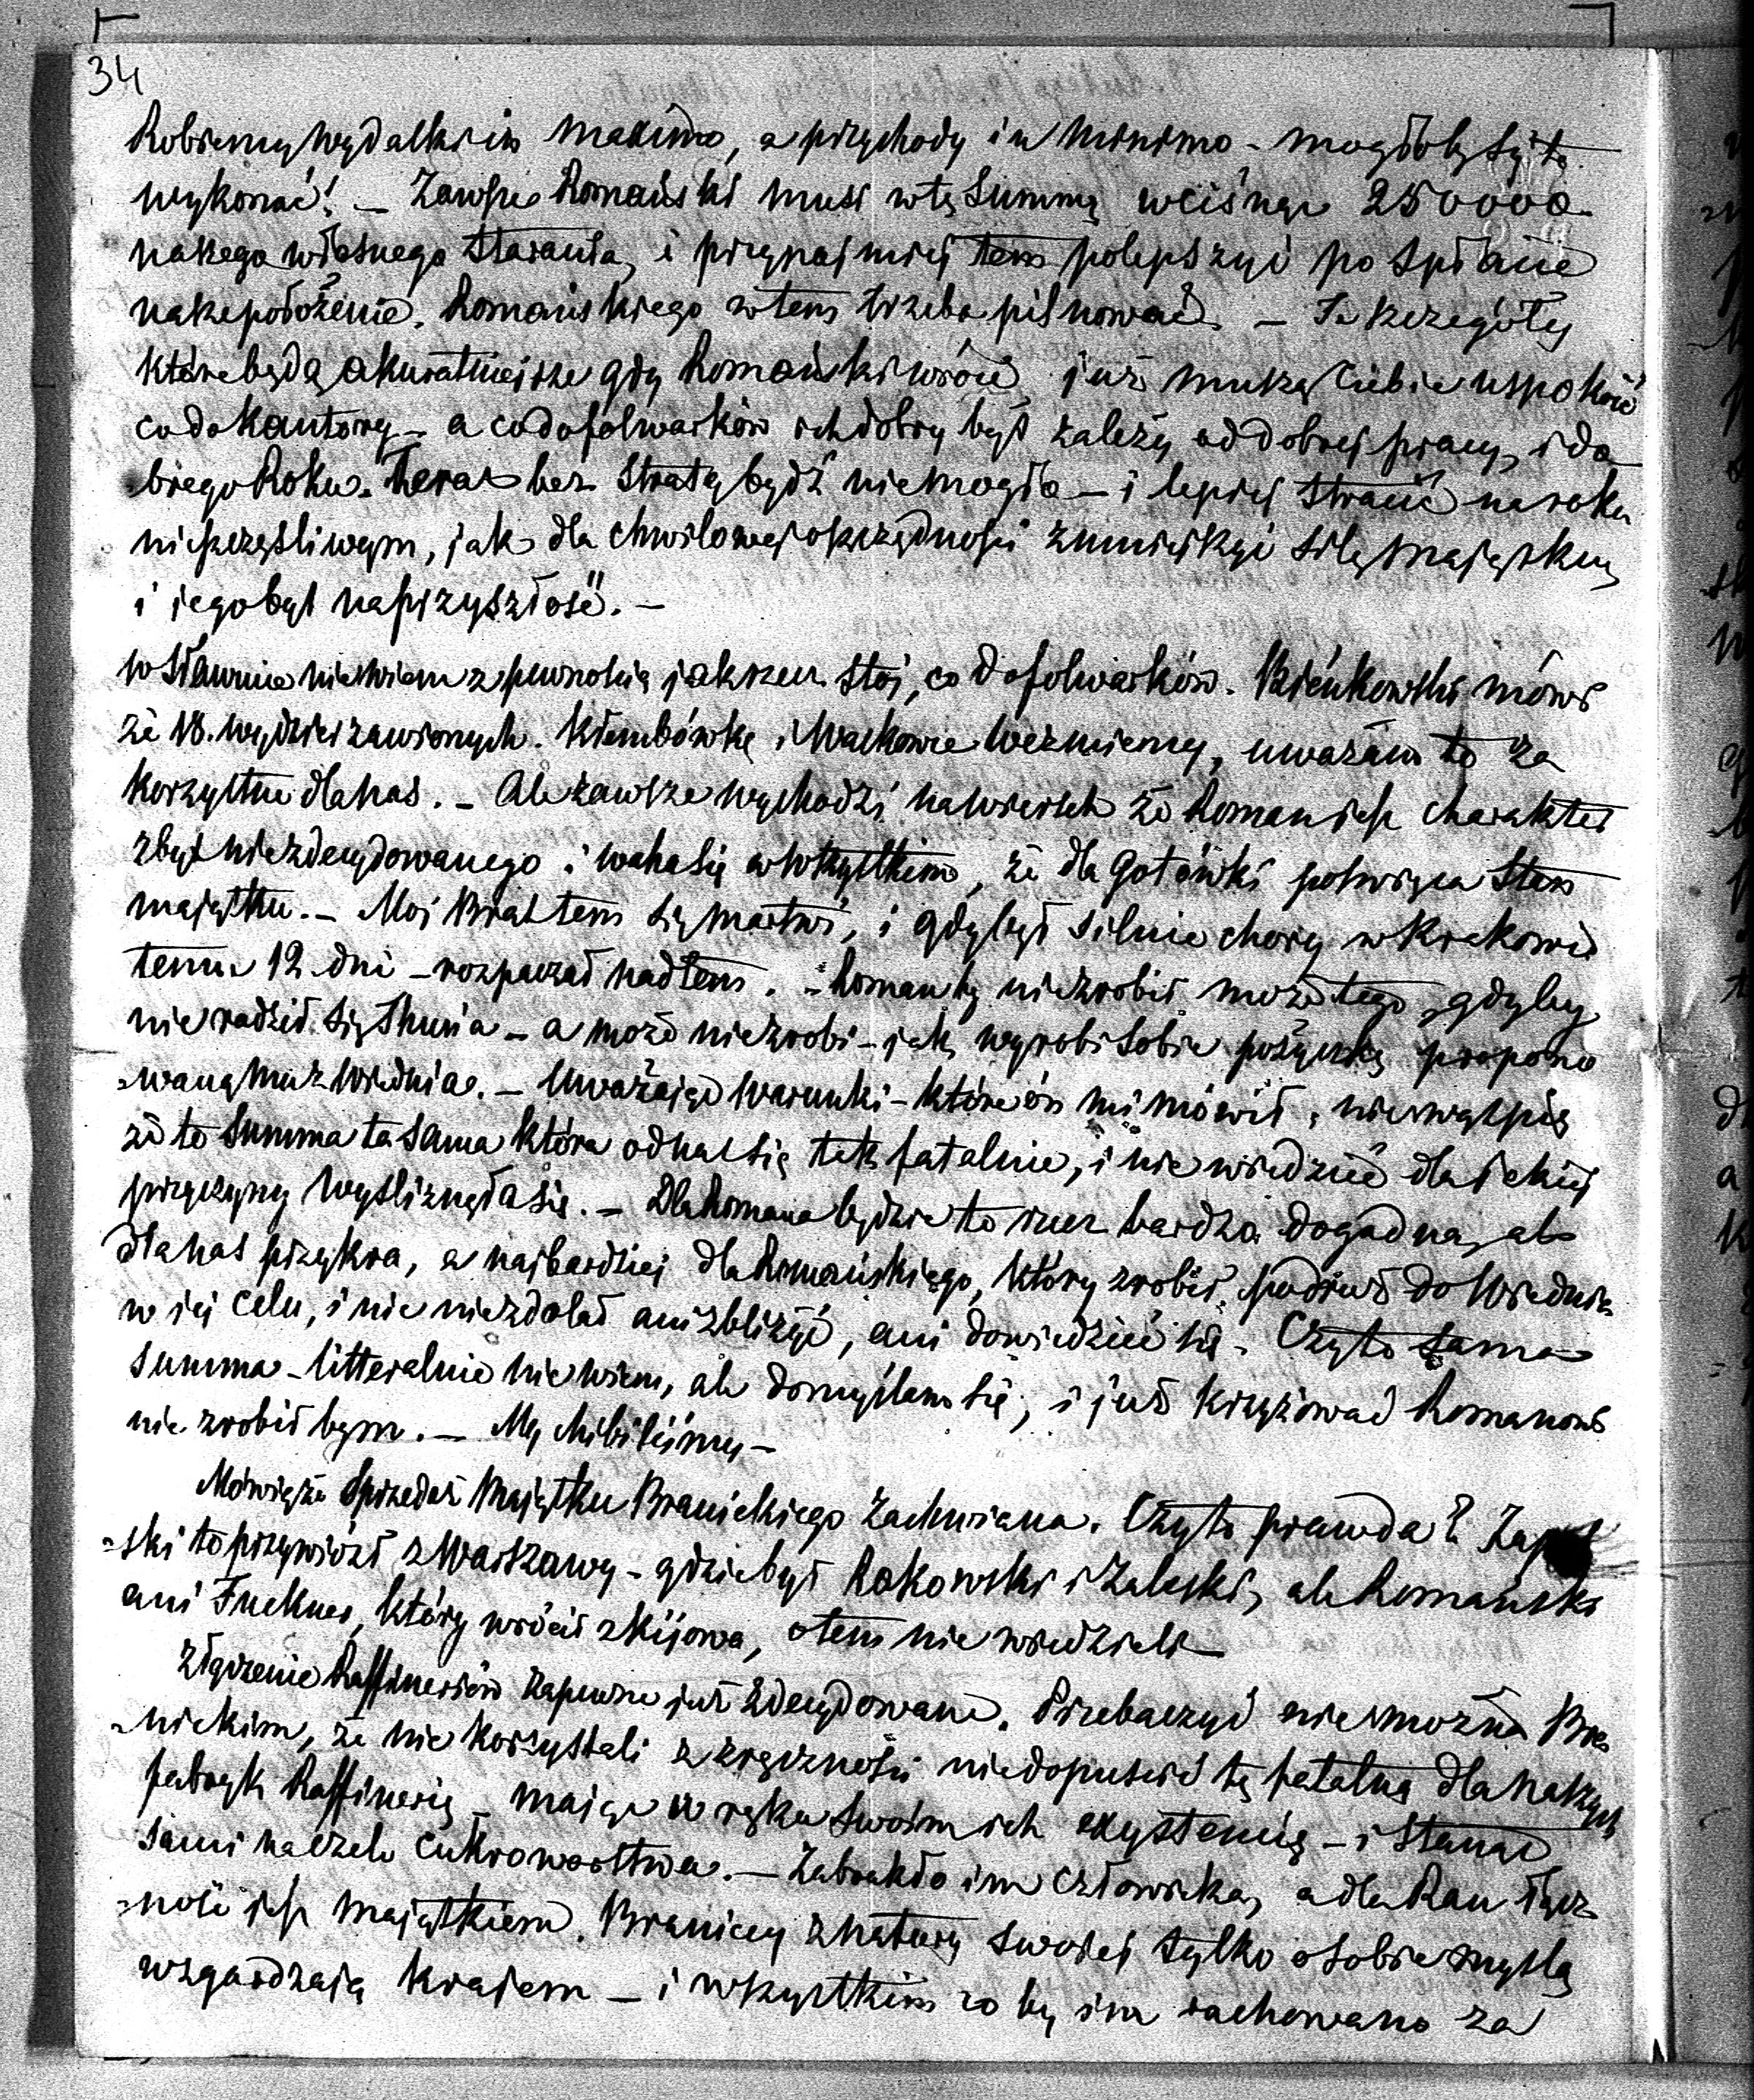 34
Robiemy wydatki in maximo, a przychody in minimo - mogłoby się to
wykonać! - Zawsze Romański musi w tę summę wcisnąć 250000
naszego własnego starania, i przynajmniej tem polepszyć po spłacie
nasze położenie. Romańskiego w tem trzeba pilnować. - Te szczegóły
które będą akuratniejsze gdy Romański wróci już muszą Ciebie uspokoić
co do Kantory - a co do folwarków ich dobry byt zależy od dobrej pracy, i do
brego Roku. Teraz bez straty bydź nie mogło - i lepiej stracić na roku
nieszczęśliwym, jak dla chwilowej oszczędności zmniejszyć siłę majątku,
i jego byt na przyszłość. -
w Sławucie nie wiem z pewnością jak rzecz stoi, co do folwarków. Bieńkowski mówi
że 18. wydzierżawionych. Kłembówkę i Waskowce weźmiemy, uważam to za
korzystne dla nas. - Ale zawsze wychodzi na wierzch że Roman jest charakter
zbyt niezdecydowanego i waha się w wszystkiem, że dla gotówki poświęca stan
majątku. - Mój Brat tem się martwi, i gdy był silnie chory w Krakowie
temu 12 dni - rozpaczał nad tem. - Roman by nie zrobił może tego, gdyby
nie radził się - a może nie zrobi - jak wyrobi sobie pożyczkę propono
waną mu z Wiednia. - Uważając warunki - które on mi mówił, nie wątpię
że to summa ta sama która od nas się tak fatalnie, i nie wiedzieć dla jakiej
przyczyny wyśliznęła się. - Dla Romana będzie to rzecz bardzo dogodna, ale
dla nas przykra, a najbardziej dla Romańskiego, który zrobił podróż do Wiednia
w jej celu, i nic nie zdołał ani zbliżyć, ani dowiedzieć się - Czy to sama
summa - litteralnie nie wiem, ale domyślam się, i już krzyżować Romanowi
nie zrobił bym. - My chibiliśmy -
Mówią że Sprzedaż Majątku Branickiego zachwiana. Czy to prawda?
ski to przywiózł z Warszawy - gdzie był Rakowski i Zaleski, ale Romański
ani Fuckner, który wrócił z Kijowa, o tem nie wiedzieli -
Złączenie Raffineriów zapewne już zdecydowane. Przebaczyć nie można Bra
nickim, że nie korzystali z zręczności niedopuścić tę fatalną dla naszych
fabryk Raffinerię - mając w ręku swoim ich exystencię - i stanąć
sami na czele cukrowarstwa. - Zabrakło im człowieka, a dla Rau łącz
ność jest majątkiem. Braniccy z natury swojej tylko o sobie myślą
wzgardzają krajem - i wszystkim co by im rachowano za